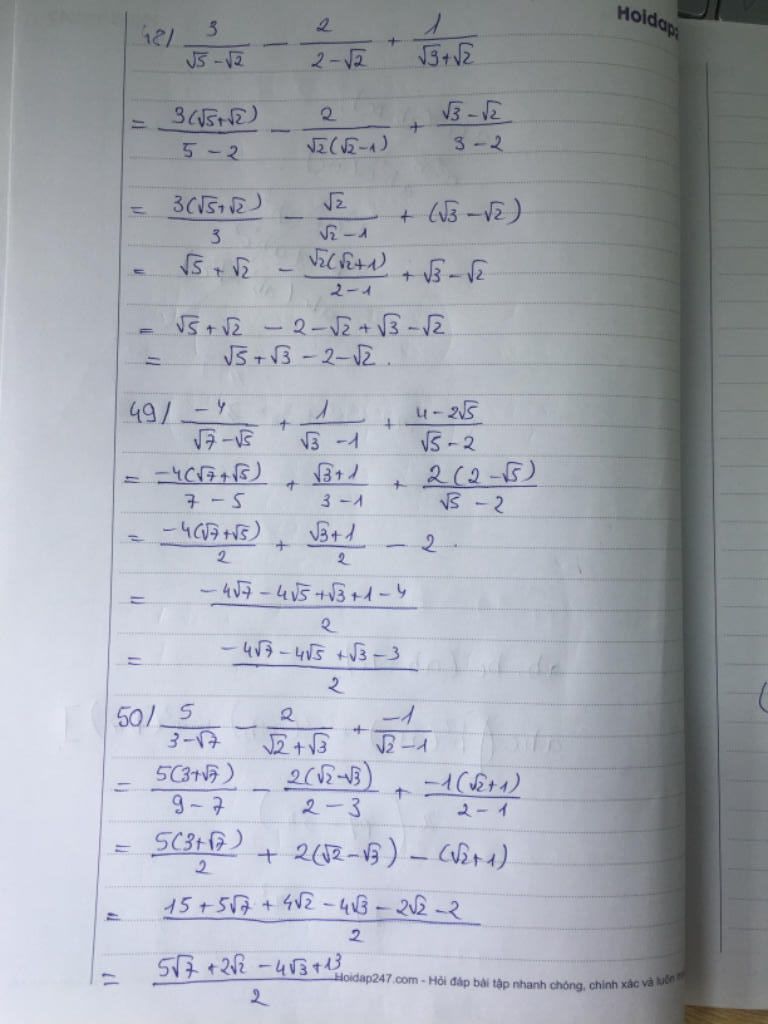 Hoidap2
48/ 3/(√5-√2) - 2/(2-√2) + 1/(√3+√2)
= 3(√5+√2)/(5-2) - 2/(√2(√2-1)) + (√3-√2)/(3-2)
= 3(√5+√2)/3 - √2/(√2-1) + (√3-√2)
= √5+√2 - √2(√2+1)/(2-1) + √3-√2
= √5+√2 - 2-√2+√3-√2
= √5+√3-2-√2.
49/ -4/(√7-√5) + 1/(√3-1) + (4-2√5)/(√5-2)
= -4(√7+√5)/(7-5) + (√3+1)/(3-1) + 2(2-√5)/(√5-2)
= -4(√7+√5)/2 + (√3+1)/2 - 2.
= (-4√7-4√5+√3+1-4)/2
= (-4√7-4√5+√3-3)/2
50/ 5/(3-√7) - 2/(√2+√3) + -1/(√2-1)
= 5(3+√7)/(9-7) - 2(√2-√3)/(2-3) + -1(√2+1)/(2-1)
= 5(3+√7)/2 + 2(√2-√3) - (√2+1)
= (15+5√7+4√2-4√3-2√2-2)/2
= (5√7+2√2-4√3+13)/2
Hoidap247.com - Hỏi đáp bài tập nhanh chóng, chính xác và luôn